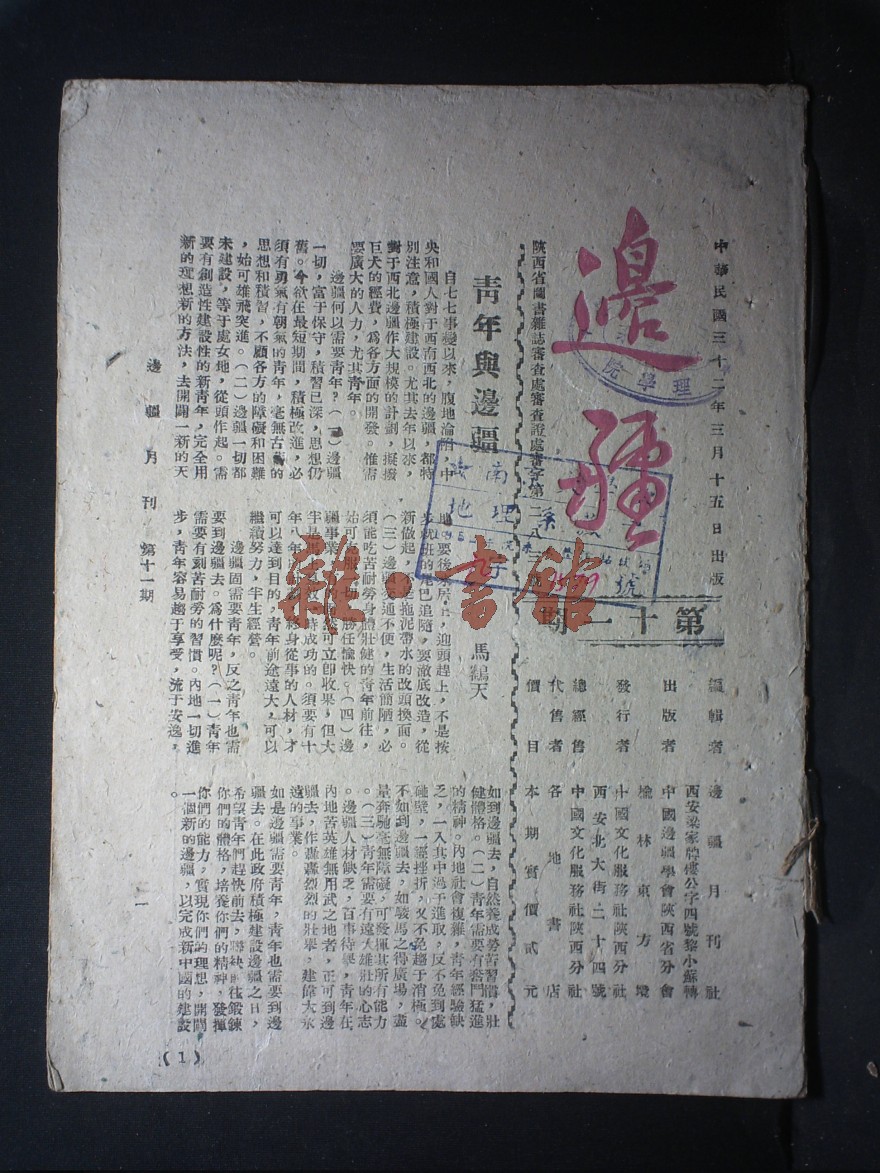 中華民國三十二年三月十五日出版
邊疆
第十一期
編輯者 邊疆月刊社
西安梁家牌樓公字四號黎小蘇轉
出版者 中國邊疆學會陝西省分會
榆林東方壜
發行者 中國文化服務社陝西分社
西安北大街二十四號
總經售 中國文化服務社陝西分社
代售者 各地書店
價目 本期實價貳元
陝西省圖書雜誌審查處審查證處審字第二八三
青年與邊疆
馬鶴天
自七七事變以來，腹地淪陷，中
央和國人對于西南西北的邊疆，都特
別注意，積極建設。尤其去年以來，
對于西北邊疆作大規模的計劃，擬撥
巨大的經費，爲各方面的開發。惟需
要廣大的人力，尤其青年。
邊疆何以需要青年？（一）邊疆
一切，富于保守，積習已深，思想仍
舊。今欲在最短期間，積極改進，必
須有勇氣有朝氣的青年，毫無古舊的
思想和積習，不顧各方的障礙和困難
，始可雄飛突進。（二）邊疆一切都
未建設，等于處女地，從頭作起。需
要有創造性建設性的新青年，完全用
新的理想新的方法，去開闢一新的天
地。要後來居上，迎頭趕上，不是按
步就班的尾巴追隨，要澈底改造，從
新做起，不是拖泥帶水的改頭換面。
（三）邊疆交通不便，生活簡陋，必
須能吃苦耐勞身體壯健的青年前往，
始可克服一切，勝任愉快。（四）邊
疆事業，可立卽收果，但大
半是時成功的。須要有十
年八年終身從事的人材，才
可以達到目的，青年前途遠大，可以
繼續努力，半生經營。
邊疆固需要青年，反之青年也需
要到邊疆去。爲什麽呢？（一）青年
需要有刻苦耐勞的習慣。內地一切進
步，青年容易趨于享受，流于安逸，
如到邊疆去，自然養成勞苦習慣，壯
健體格。（二）青年需要有奮鬥猛進
的精神。內地社會複雜，青年經驗缺
乏，一入其中過于進取，反不免到處
碰壁，一經挫折，又不免趨于消極。
不如到邊疆去，如駿馬之得廣場，盡
量奔馳毫無障礙，可發揮其所有能力
。（三）青年需要有遠大雄壯的心志
。邊疆人材缺乏，百事待舉，青年在
內地苦英雄無用武之地者，正可到邊
疆去，作轟轟烈烈的壯舉，建偉大永
遠的事業。
如是邊疆需要青年，青年也需要到邊
疆去。在此政府積極建設邊疆之日，
希望青年們趕快前去，聯袂前往鍛鍊
你們的體格，培養你們的精神，發揮
你們的能力，實現你們的理想，開闢
一個新的邊疆，以完成新中國的建設
。
邊疆月刊 第十一期 一
（1）
理學院
地理系
號
雜·書館